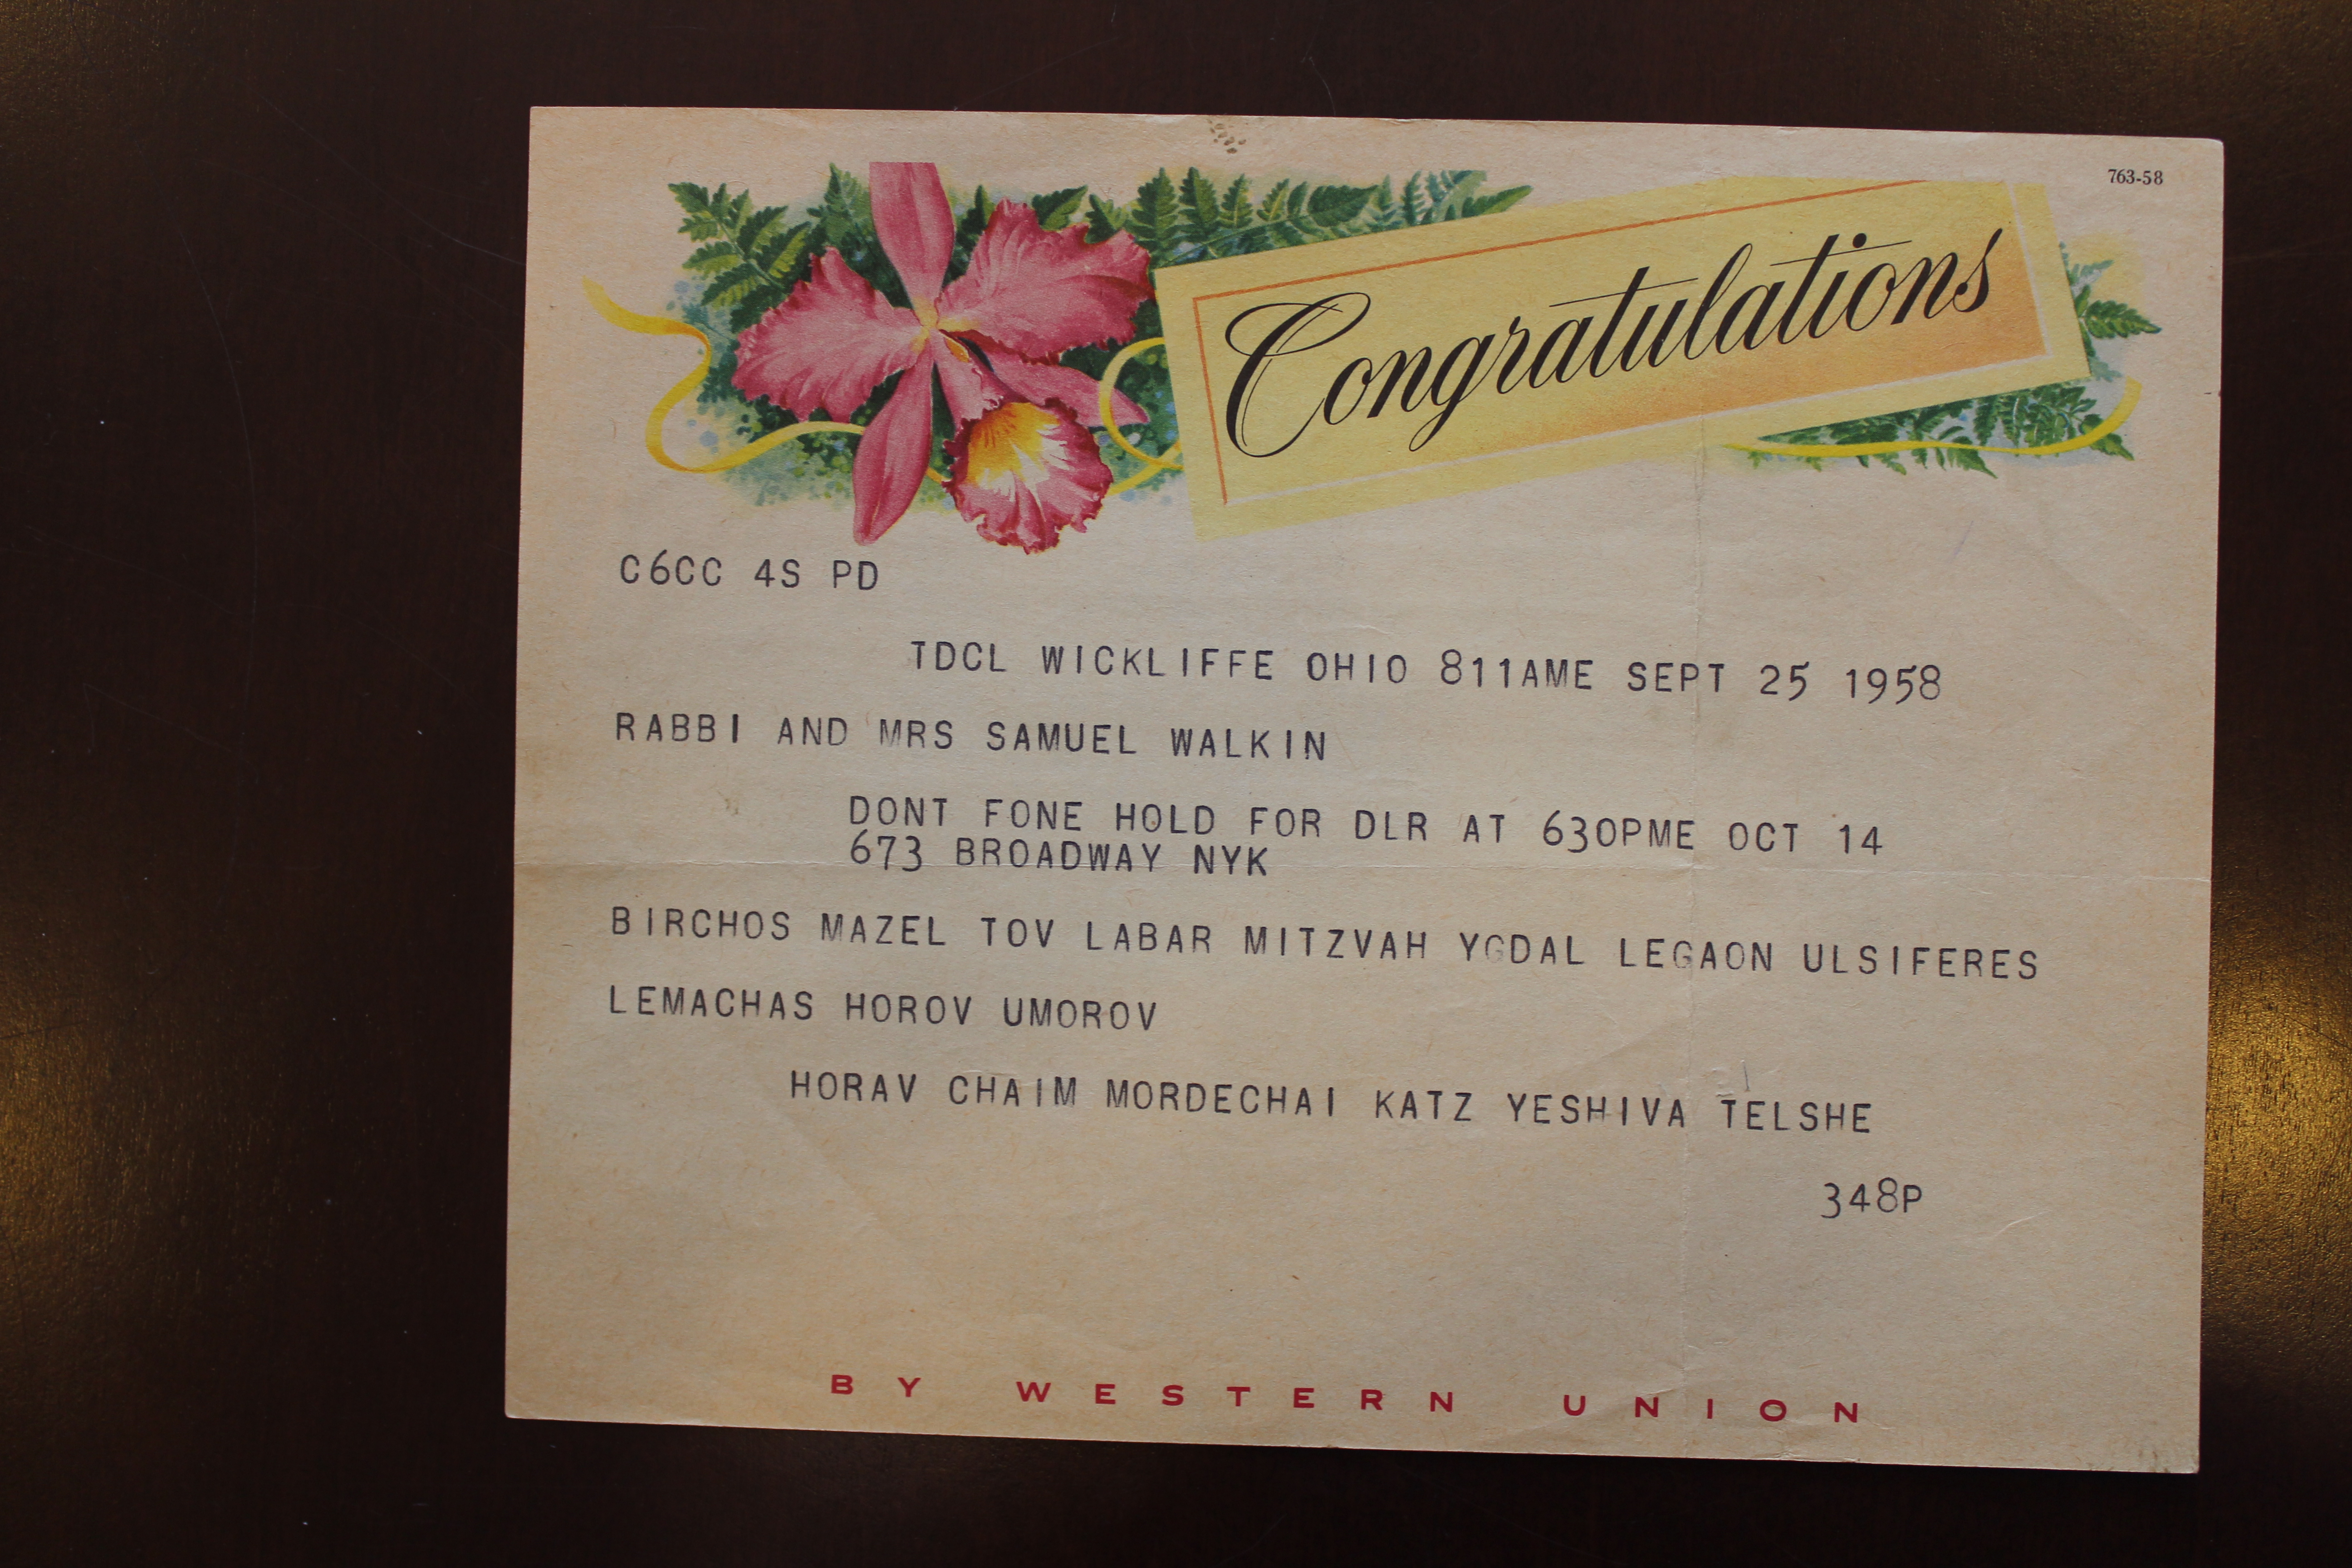 763-58
Congratulations
C6CC 4S PD
TDCL WICKLIFFE OHIO 811AME SEPT 25 1958
RABBI AND MRS SAMUEL WALKIN
DONT FONE HOLD FOR DLR AT 630PME OCT 14
673 BROADWAY NYK
BIRCHOS MAZEL TOV LABAR MITZVAH YGDAL LEGAON ULSIFERES
LEMACHAS HOROV UMOROV
HORAV CHAIM MORDECHAI KATZ YESHIVA TELSHE
348P
BY WESTERN UNION